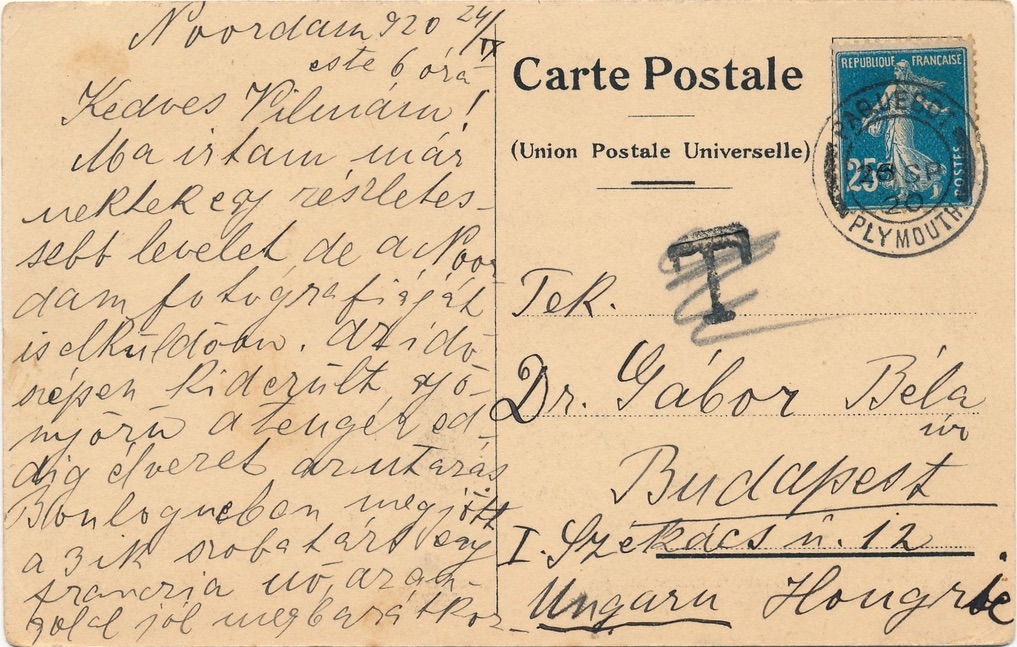 Noordam 920 24/IX
este 6 óra
Kedves Vilmám!
Ma irtam már
nektek egy részletes-
sebb levelet de a Noor
dam fotografiáját
is elküldöm. Az idő
szépen kiderült, gyö-
nyörü a tenger ed-
dig élvezet az utazás
Boulogneban megjött
a 3ik szobatárs egy
francia nő, az an-
gollal jól megbarátkoz-
Carte Postale
(Union Postale Universelle)
REPUBLIQUE FRANÇAISE
25
POSTES
PAQUEBOT
26 SP
20
PLYMOUTH
T
Tek.
Dr. Gábor Béla
úr
Budapest
I. Székács u. 12
Ungarn Hongrie